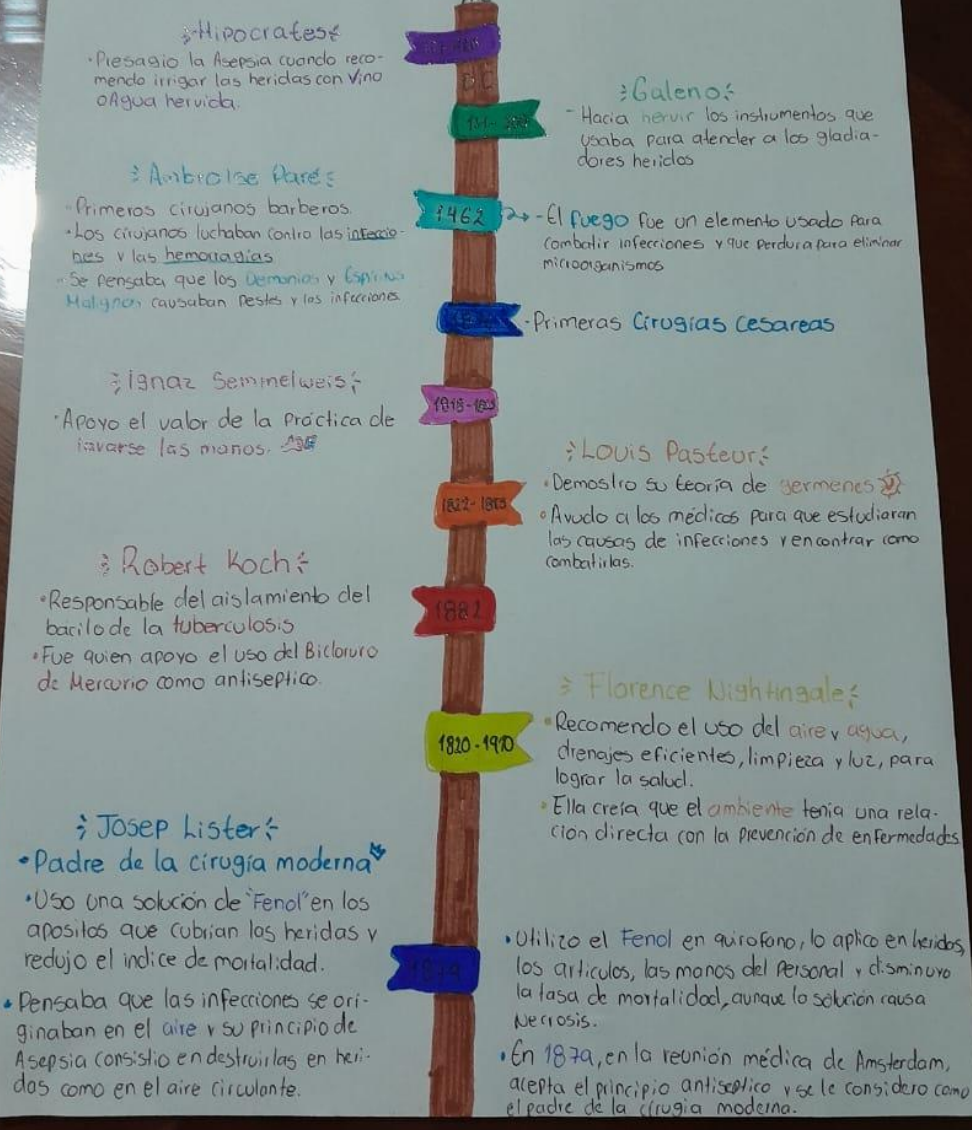 Hipocrates
·Presagio la Asepsia cuando reco-
mendo irrigar las heridas con Vino
o Agua hervida.
:Galeno:
- Hacia hervir los instrumentos que
usaba para atender a los gladia-
dores heridos
Ambroise Paré
·Primeros cirujanos barberos.
·Los cirujanos luchaban contra las infeccio-
nes y las hemorragias
·Se pensaba que los Demonios y Espíritus
Malignos causaban pestes y las infecciones.
1462
-El fuego fue un elemento usado para
combatir infecciones y que perdura para eliminar
microorganismos
-Primeras Cirugías Cesareas
Ignaz Semmelweis
·Apoyo el valor de la práctica de
lavarse las manos.
1818-
Louis Pasteur
·Demostro su teoría de germenes
·Ayudo a los médicos para que estudiaran
las causas de infecciones y encontrar como
combatirlas.
1822-
Robert Koch
·Responsable del aislamiento del
bacilo de la tuberculosis
·Fue quien apoyo el uso del Bicloruro
de Mercurio como antiseptico.
1882
Florence Nightingale
·Recomendo el uso del aire y agua,
drenajes eficientes, limpieza y luz, para
lograr la salud.
·Ella creía que el ambiente tenia una rela-
ción directa con la prevención de enfermedades
1820-1910
Josep Lister
·Padre de la cirugía moderna
·Uso una solución de "Fenol" en los
apositos que cubrian las heridas y
redujo el indice de mortalidad.
·Pensaba que las infecciones se ori-
ginaban en el aire y su principio de
Asepsia consistio en destruirlas en heri-
das como en el aire circulante.
1879
·Utilizo el Fenol en quirofono, lo aplico en heridas,
los articulos, las manos del personal y disminuyo
la tasa de mortalidad, aunque la solución causa
Necrosis.
·En 1879, en la reunión médica de Amsterdam,
acepta el principio antiseptico y se le considero como
el padre de la cirugia moderna.